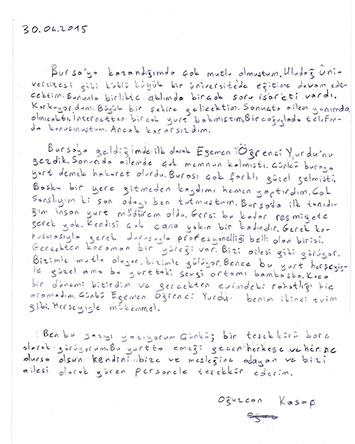 30.04.2015
Bursa'yı kazandığımda çok mutlu olmuştum. Uludağ Üni-
versitesi gibi köklü büyük bir üniversitede eğitime devam ede-
cektim. Bununla birlikte aklımda birçok soru işareti vardı.
Korkuyordum. Büyük bir şehire gelicektim. Sonuçta ailem yanımda
olmıcaktı. İnternetten birçok yere bakmıştım. Birçoğuylada telefon-
da konuşmuştum. Ancak kararsızdım.
Bursaya geldiğimde ilk olarak Egemen Öğrenci Yurdu'nu
gezdik. Sonunda ailemde çok memnun kalmıştı. Çünkü buraya
yurt demek hakaret olurdu. Burası çok farklı güzel gelmişti.
Başka bir yere gitmeden kaydımı hemen yaptırdım. Çok
şanslıyım ki son odayı ben tutmuştum. Bursada ilk tanıdı-
ğım insan yurt müdürem oldu. Gerçi bu kadar resmiyete
gerek yok. Kendisi çok cana yakın bir kadındır. Gerek ko-
nuşmasıyla gerek duruşuyla profesyonelliği belli olan birisi.
Gerçekten kocaman bir yüreği var. Bizi ailesi gibi görüyor.
Bizimle mutlu oluyor, bizimle gülüyor. Bence bu yurt herşeyiy-
le güzel ama bu yurttaki sevgi ortamı bambaşka. Koca
bir dönemi bitirdim ve gerçekten evimdeki rahatlığı hiç
aramadım. Çünkü Egemen Öğrenci Yurdu benim ikinci yuvam
gibi. Herşeyiyle mükemmel.
Ben bu yazıyı yazıyorum Çünkü; bir teşekkürü borç
olarak görüyorum. Bu yurtta emeği geçen herkese ve her ne
olursa olsun kendini bize ve mesleğine adayan ve bizi
ailesi olarak gören personele teşekkür ederim.
Oğuzcan Kasap